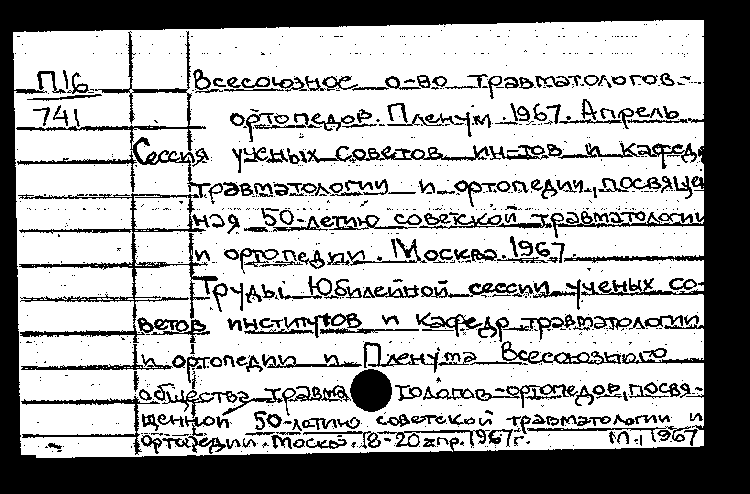 П16
741
Всесоюзное о-во травматологов-
ортопедов. Пленум. 1967. Апрель
Сессия ученых советов ин-тов и кафедр
травматологии и ортопедии, посвящен
ная 50-летию советской травматологии
и ортопедии. Москва. 1967
Труды Юбилейной сессии ученых со-
ветов институтов и кафедр травматологии
и ортопедии и Пленума Всесоюзного
общества травматологов-ортопедов, посвя-
щенной 50-летию советской травматологии и
ортопедии. Москва. 18-20 апр. 1967г. М., 1967